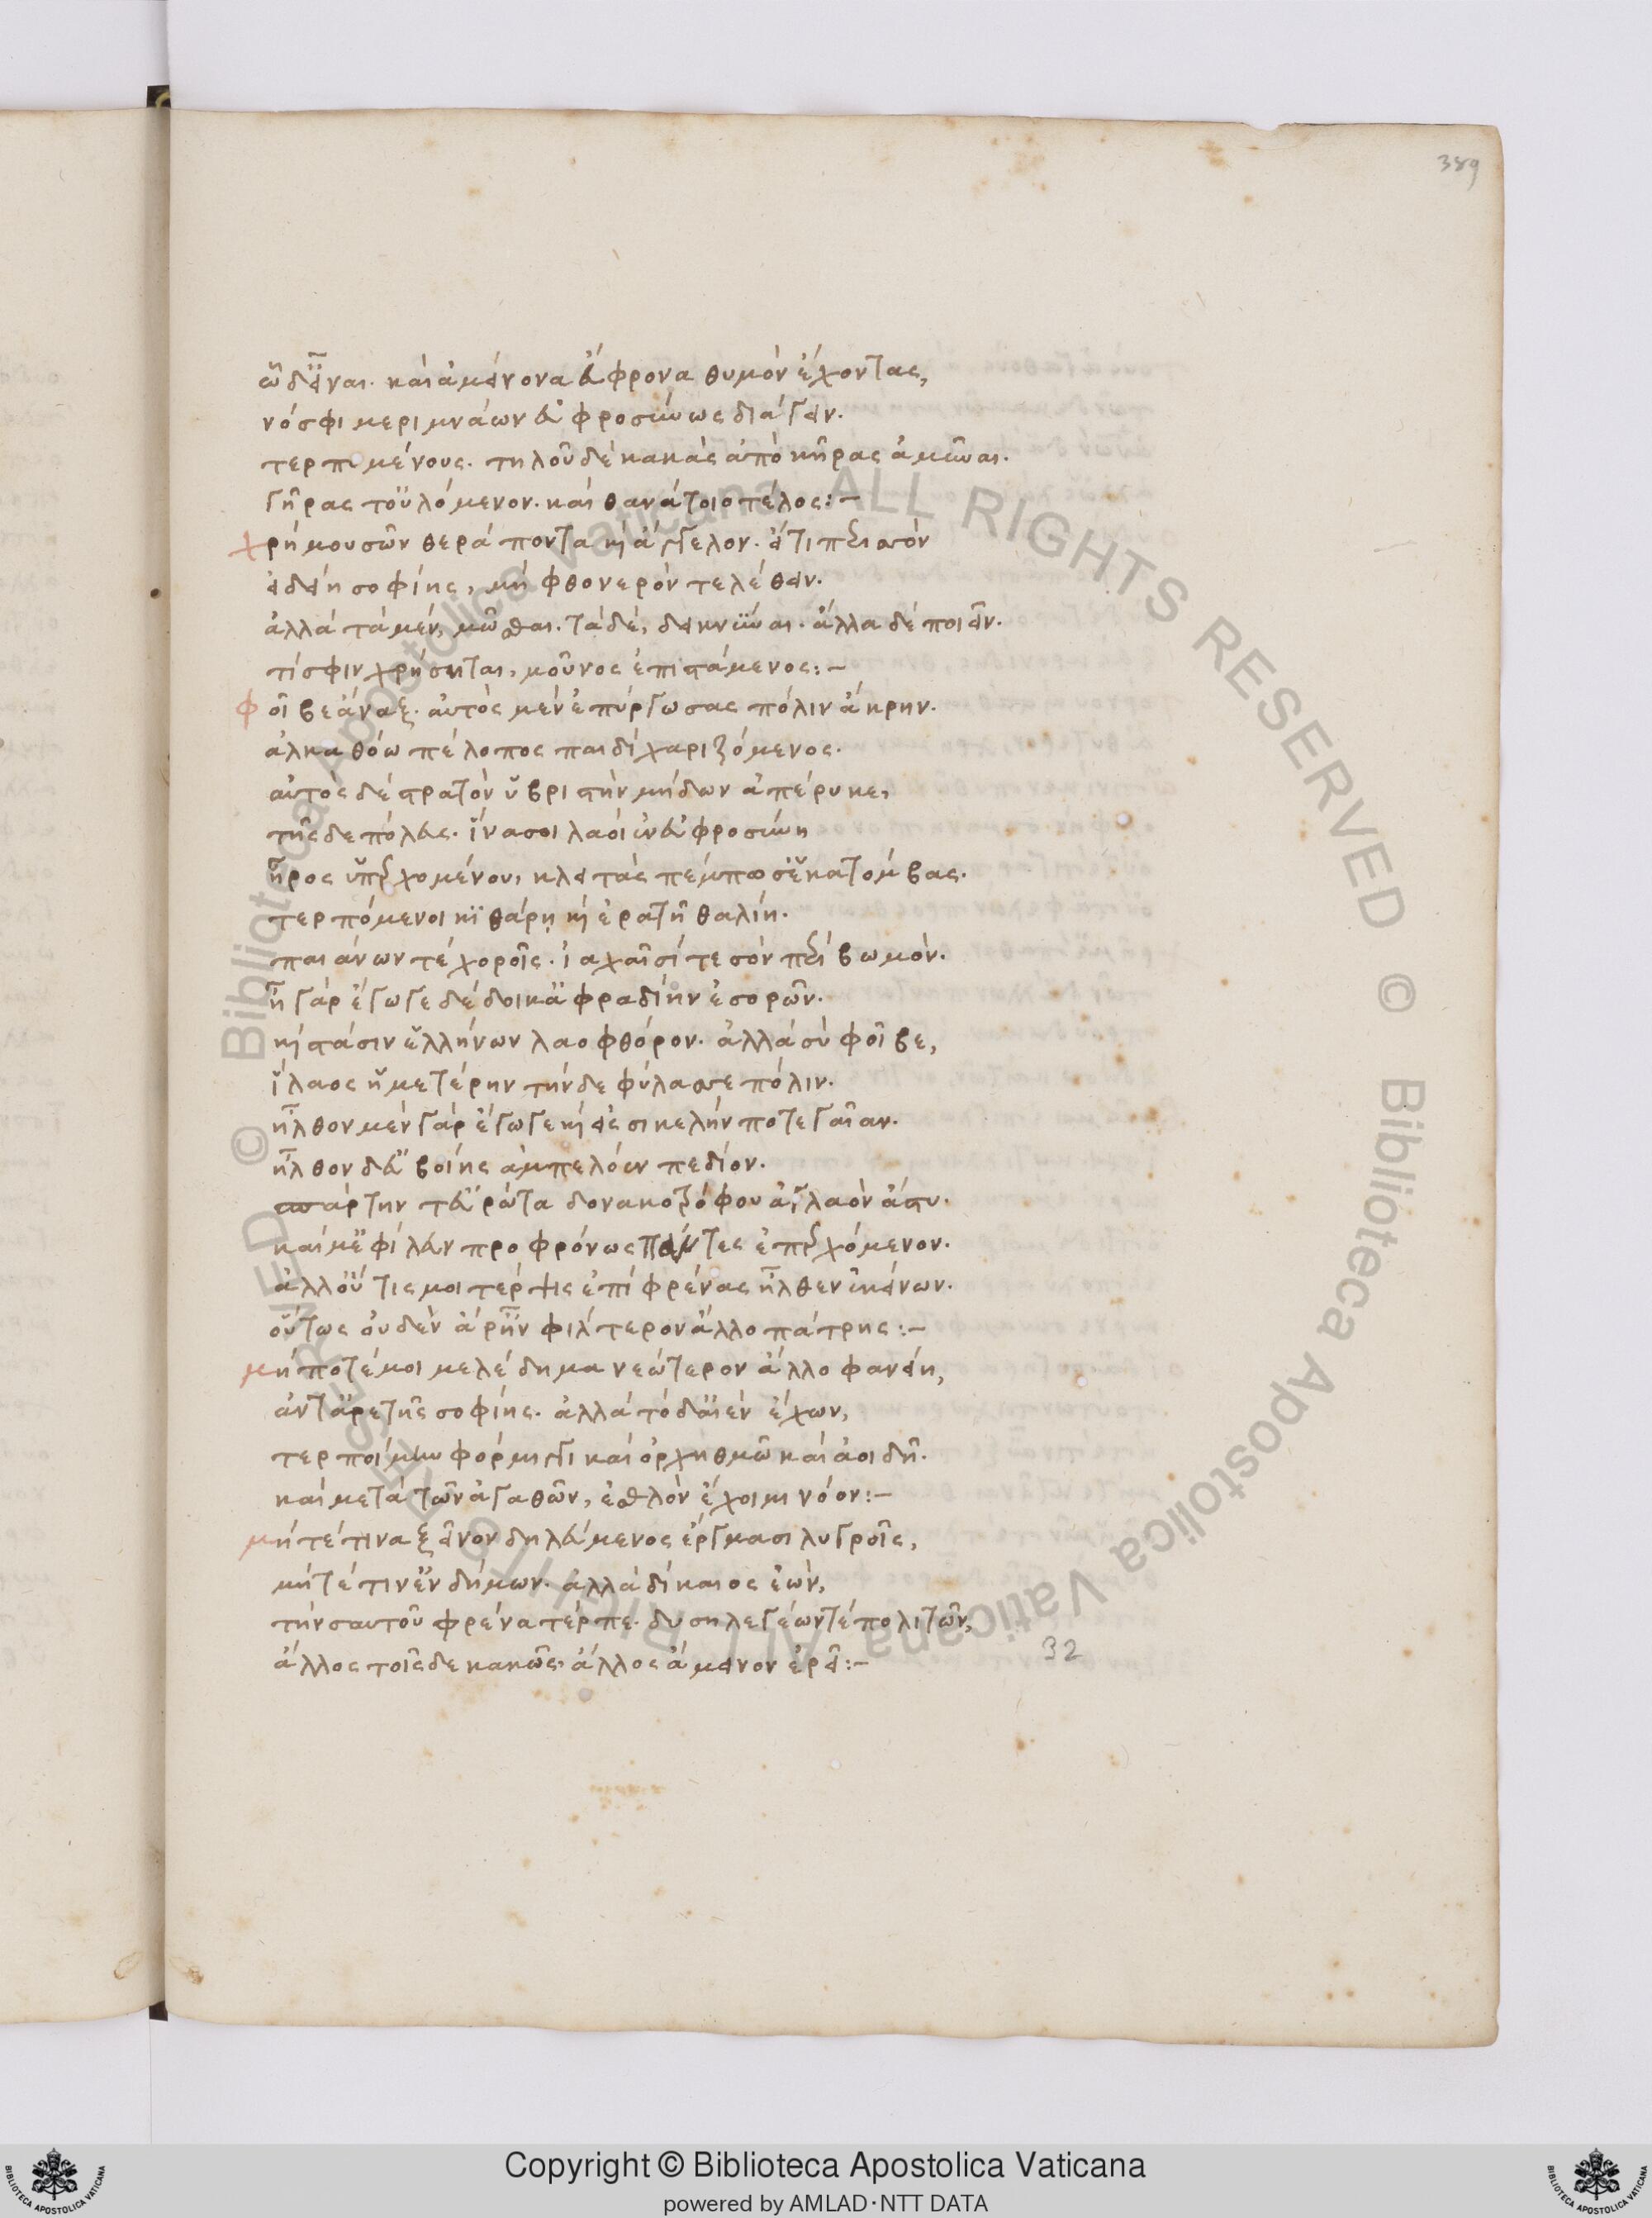 389
ὧδ' εἶναι. καὶ ἀμείνονα εὔφρονα θυμὸν ἔχοντας,
νόσφι μεριμνάων εὐφροσύνως διάγειν.
τερπομένους. τηλοῦ δὲ κακὰς ἀπὸ κῆρας ἀμῦναι.
γῆρας τ' οὐλόμενον. καὶ θανάτοιο τέλος:-
χρὴ μουσῶν θεράποντα κ(αὶ) ἄγγελον. εἴ τι περισσὸν
εἰδείη σοφίης, μὴ φθονερὸν τελέθειν.
ἀλλὰ τὰ μὲν, μῶσθαι. τὰ δὲ, δεικνύναι. ἄλλα δὲ ποιεῖν.
τί σφιν χρήσηται, μοῦνος ἐπιστάμενος:-
φοῖβε ἄναξ. αὐτὸς μὲν ἐπύργωσας πόλιν ἄκρην.
ἀλκαθόω πέλοπος παιδὶ χαριζόμενος.
αὐτὸς δὲ στρατὸν ὑβριστὴν μήδων ἀπέρυκε,
τῆσδε πόλευς. ἵνα σοι λαοὶ ἐν εὐφροσύνη
ἦρος ὑπερχομένου, κλειτὰς πέμπωσ' ἑκατόμβας.
τερπόμενοι κιθάρῃ κ(αὶ) ἐρατῇ θαλίη.
παιάνων τὲ χοροῖς. ἰαχαῖσί τε σὸν περὶ βωμόν.
ἦ γὰρ ἔγωγε δέδοικ' ἀφραδίην ἐσορῶν.
κ(αὶ) στάσιν ἑλλήνων λαοφθόρον. ἀλλὰ σὺ φοῖβε,
ἵλαος ἡμετέρην τήνδε φύλασσε πόλιν.
ἦλθον μὲν γὰρ ἔγωγε κ(αὶ) εἰς σικελήν ποτε γαῖαν.
ἦλθον δ' εὐβοίης ἀμπελόεν πεδίον.
σπάρτην τ' εὐρώτα δονακοτρόφου ἀγλαὸν ἄστυ.
καί μ' ἐφίλευν προφρόνως πάντες ἐπερχόμενον.
ἀλλ' οὔτις μοι τέρψις ἐπὶ φρένας ἦλθεν ἐκείνων.
οὕτως οὐδὲν ἄρ' ἦν φιλτερον ἄλλο πάτρης:-
μήποτέ μοι μελέδημα νεώτερον ἄλλο φανείη,
ἀντ' ἀρετῆς σοφίης. ἀλλὰ τόδ' αἰὲν ἔχων,
τερποίμην φόρμιγγι καὶ ὀρχηθμῶ καὶ ἀοιδῇ.
καὶ μετὰ τῶν ἀγαθῶν, ἐσθλὸν ἔχοιμι νόον:-
μήτέ τινα ξεῖνον δηλεύμενος ἔργμασι λυγροῖς,
μήτέ τιν' ἐνδήμων. ἀλλὰ δίκαιος ἐὼν,
τὴν σαυτοῦ φρένα τέρπε. δυσηλεγέων τὲ πολιτῶν,
ἄλλος τοῖσδε κακῶς. ἄλλος ἄμεινον ἐρεῖ:-
32
© Biblioteca Apostolica Vaticana ALL RIGHTS RESERVED © Biblioteca Apostolica Vaticana ALL RIGHTS RESERVED
Copyright © Biblioteca Apostolica Vaticana
powered by AMLAD・NTT DATA
BIBLIOTECA APOSTOLICA VATICANA
BIBLIOTECA APOSTOLICA VATICANA